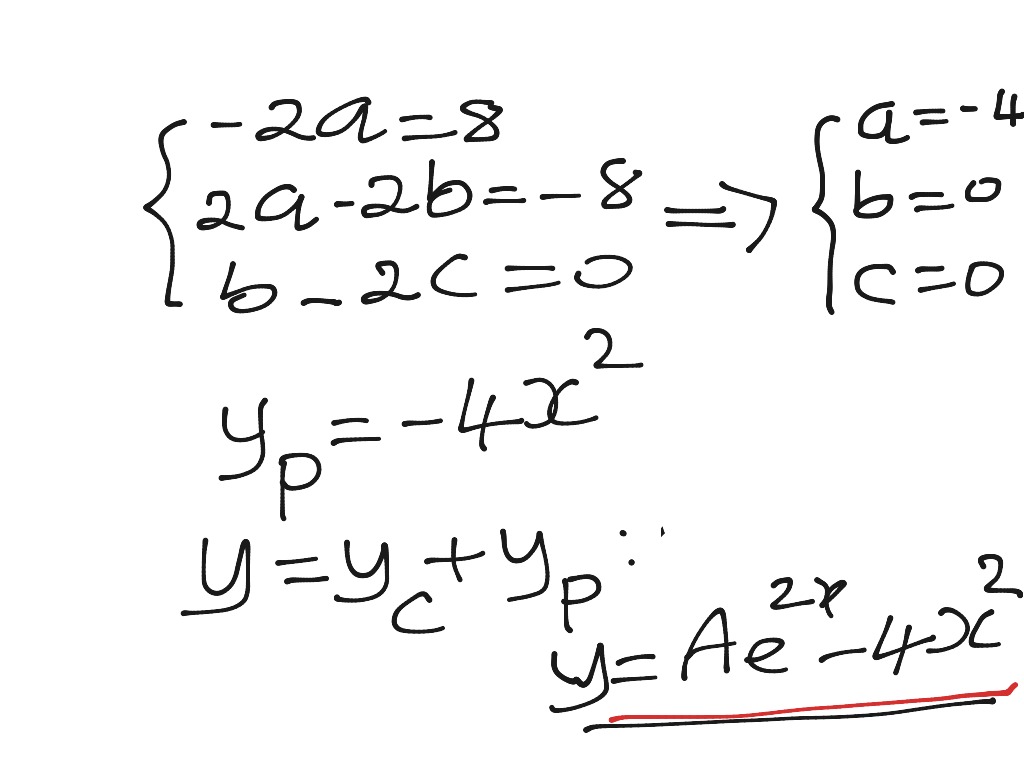 -2a=8
2a-2b=-8 => a=-4
b-2c=0 b=0
c=0
y_p=-4x^2
y=y_c+y_p ∵
y=Ae^{2x}-4x^2